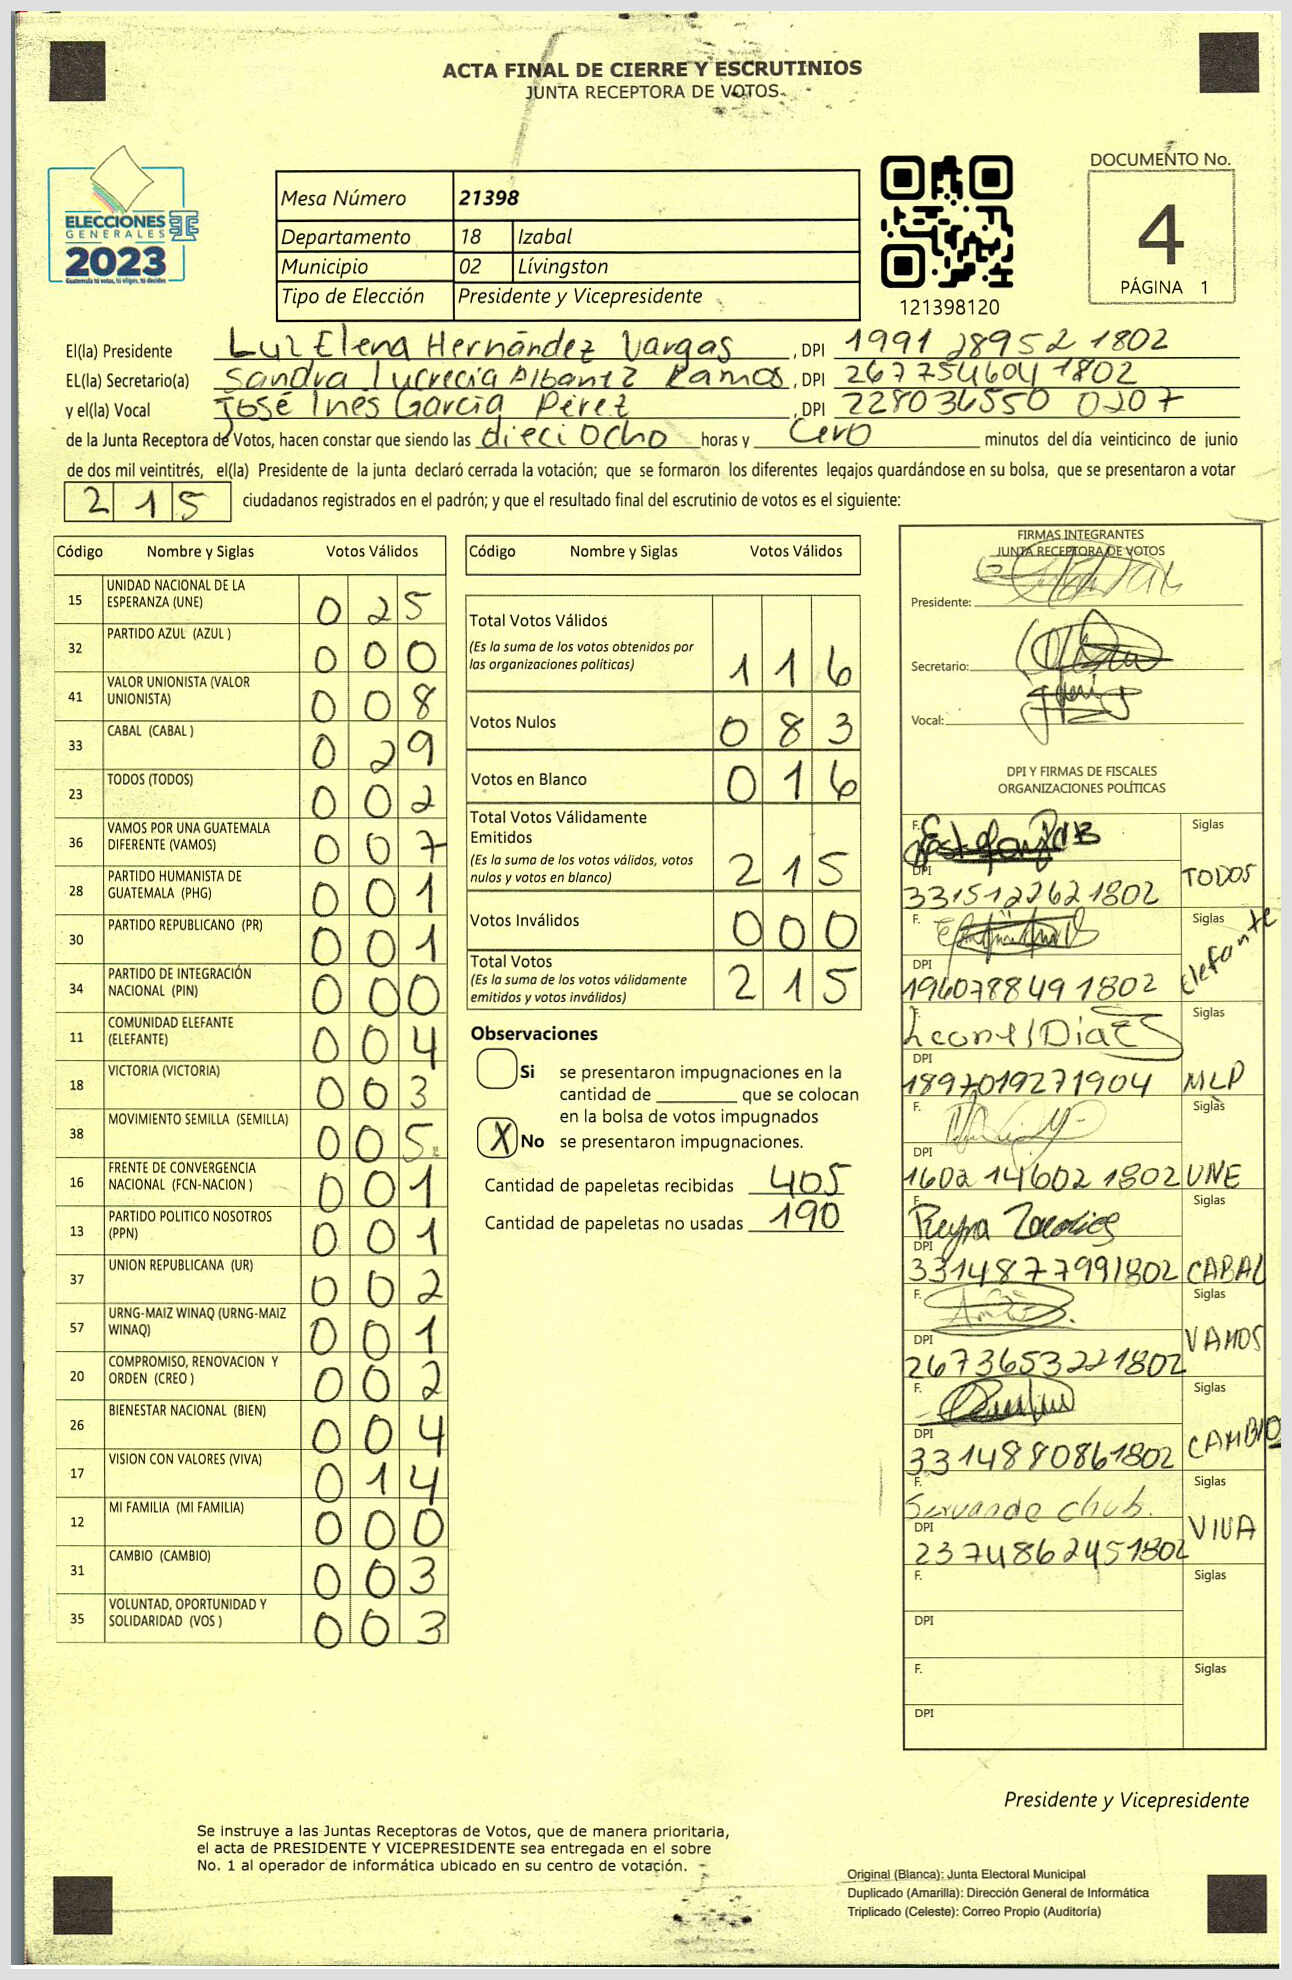 ACTA FINAL DE CIERRE Y ESCRUTINIOS
JUNTA RECEPTORA DE VOTOS
ELECCIONES
GENERALES
2023
Guatemala tú votas, tú eliges, tú decides
Mesa Número 21398
Departamento 18 Izabal
Municipio 02 Lívingston
Tipo de Elección Presidente y Vicepresidente
121398120
DOCUMENTO No.
4
PÁGINA 1
El(la) Presidente Luz Elena Hernández Vargas, DPI 1991 28952 1802
EL(la) Secretario(a) Sandra Lucrecia Ramos, DPI 267754604 1802
y el(la) Vocal José Ines García Pérez, DPI 228036550 0207
de la Junta Receptora de Votos, hacen constar que siendo las dieciocho horas y cero minutos del día veinticinco de junio
de dos mil veintitrés, el(la) Presidente de la junta declaró cerrada la votación; que se formaron los diferentes legajos quardándose en su bolsa, que se presentaron a votar
215 ciudadanos registrados en el padrón; y que el resultado final del escrutinio de votos es el siguiente:
Código Nombre y Siglas Votos Válidos
15 UNIDAD NACIONAL DE LA ESPERANZA (UNE) 025
32 PARTIDO AZUL (AZUL ) 000
41 VALOR UNIONISTA (VALOR UNIONISTA) 008
33 CABAL (CABAL ) 029
23 TODOS (TODOS) 002
36 VAMOS POR UNA GUATEMALA DIFERENTE (VAMOS) 007
28 PARTIDO HUMANISTA DE GUATEMALA (PHG) 001
30 PARTIDO REPUBLICANO (PR) 001
34 PARTIDO DE INTEGRACIÓN NACIONAL (PIN) 000
11 COMUNIDAD ELEFANTE (ELEFANTE) 004
18 VICTORIA (VICTORIA) 003
38 MOVIMIENTO SEMILLA (SEMILLA) 005
16 FRENTE DE CONVERGENCIA NACIONAL (FCN-NACION ) 001
13 PARTIDO POLITICO NOSOTROS (PPN) 001
37 UNION REPUBLICANA (UR) 002
57 URNG-MAIZ WINAQ (URNG-MAIZ WINAQ) 001
20 COMPROMISO, RENOVACION Y ORDEN (CREO ) 002
26 BIENESTAR NACIONAL (BIEN) 004
17 VISION CON VALORES (VIVA) 014
12 MI FAMILIA (MI FAMILIA) 000
31 CAMBIO (CAMBIO) 003
35 VOLUNTAD, OPORTUNIDAD Y SOLIDARIDAD (VOS ) 003
Código Nombre y Siglas Votos Válidos
Total Votos Válidos 116
(Es la suma de los votos obtenidos por
las organizaciones políticas)
Votos Nulos 083
Votos en Blanco 016
Total Votos Válidamente
Emitidos 215
(Es la suma de los votos válidos, votos
nulos y votos en blanco)
Votos Inválidos 000
Total Votos 215
(Es la suma de los votos válidamente
emitidos y votos inválidos)
Observaciones
Si se presentaron impugnaciones en la
cantidad de ________ que se colocan
en la bolsa de votos impugnados
X No se presentaron impugnaciones.
Cantidad de papeletas recibidas 405
Cantidad de papeletas no usadas 190
FIRMAS INTEGRANTES
JUNTA RECEPTORA DE VOTOS
Presidente:
Secretario:
Vocal:
DPI Y FIRMAS DE FISCALES
ORGANIZACIONES POLÍTICAS
F. Siglas
DPI 331512262 1802 TODOS
F. Siglas
DPI 196078849 1802 Elefante
F. Leonel Díaz Siglas
DPI 1897019271904 MLP
F. Siglas
DPI 1602 14602 1802 UNE
F. Reyna Siglas
DPI 3314877991802 CABAL
F. Siglas
DPI 2673653221802 VAMOS
F. Siglas
DPI 3314880861802 CAMBIO
F. Servando Chub. Siglas
DPI 2374862451802 VIVA
F. Siglas
DPI
F. Siglas
DPI
Presidente y Vicepresidente
Se instruye a las Juntas Receptoras de Votos, que de manera prioritaria,
el acta de PRESIDENTE Y VICEPRESIDENTE sea entregada en el sobre
No. 1 al operador de informática ubicado en su centro de votación.
Original (Blanca): Junta Electoral Municipal
Duplicado (Amarilla): Dirección General de Informática
Triplicado (Celeste): Correo Propio (Auditoría)